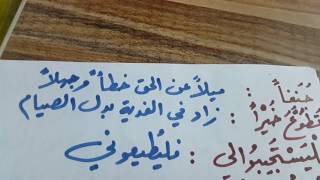 جَنَفاً : ميلاً عن الحق خطأً وجهلاً
تَطَوَّعَ خَيْراً : زاد في الفدية بدل الصيام
فَلْيَسْتَجِيبُوا لِي : فليُطيعوني